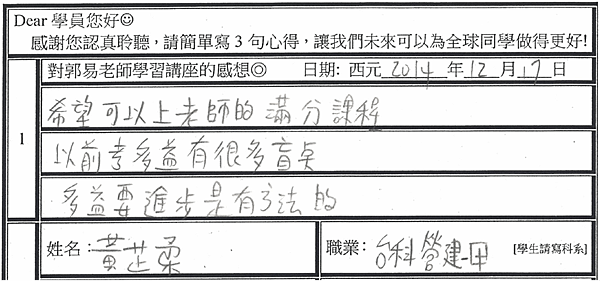 Dear 學員您好☺
感謝您認真聆聽，請簡單寫 3 句心得，讓我們未來可以為全球同學做得更好!
對郭易老師學習講座的感想◎ 日期: 西元 2014 年 12 月 17 日
1
希望可以上老師的滿分課程
以前考多益有很多盲点
多益要進步是有方法的
姓名：黃芷柔 職業：台科營建四 [學生請寫科系]